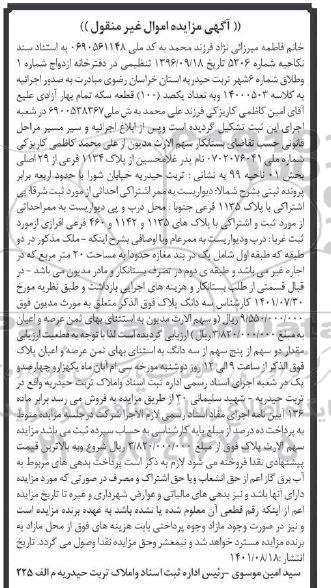 (( آگهی مزایده اموال غیر منقول ))
خانم فاطمه میرزائی نژاد فرزند محمد به کد ملی ۰۶۹۰۵۶۱۱۴۸ به استناد سند
نکاحیه شماره ۵۳۰۶ تاریخ ۱۳۹۶/۰۹/۱۸ تنظیمی در دفترخانه ازدواج شماره ۱
وطلاق شماره ۶شهر تربت حیدریه استان خراسان رضوی مبادرت به صدور اجرائیه
به کلاسه ۱۴۰۰۰۵۰۳ وبه تعداد یکصد (۱۰۰) قطعه سکه تمام بهار آزادی علیه
آقای امین کاظمی کاریزکی فرزند علی محمد به ش ملی ۰۶۹۰۰۵۳۸۳۶۷ در شعبه
اجرای این ثبت تشکیل گردیده است وپس از ابلاغ اجرائیه و سیر مسیر مراحل
قانونی حسب تقاضای بستانکار سهم الارث مدیون از علی محمد کاظمی کاریزکی
شماره ملی ۰۷۰۲۰۷۶۰۴۱ نام پدر غلامحسین از پلاک ۱۱۳۴ فرعی از ۲۹ اصلی
بخش ۰۱ ناحیه ۹۹ به نشانی : تربت حیدریه خیابان شورا با حدود اربعه برابر
پرونده ثبتی بشرح شمالا: دیواریست به ممر اشتراکی احداثی از مورد ثبت شرقا: پی
اشتراکی با پلاک ۱۱۳۵ فرعی جنوبا : محل درب و پی دیواریست به ممراحداثی
از مورد ثبت و اشتراکی با پلاک های ۱۱۳۵ و ۱۱۴۲ و ۴۶۰ فرعی افرازی ازمورد
ثبت غربا : درب ودیواریست به ممرعام وبا اوصافی بشرح اینکه - ملک مذکور در دو
طبقه که طبقه اول شامل یک در بند مغازه حدودا به مساحت ۲۰ متر مربع که در
اجاره غیر می باشد و طبقه ی دوم در تصرف بستانکار و مادر مدیون می باشد - در
قبال قسمتی از طلب بستانکار و هزینه های اجرایی بازداشت و طبق نظریه مورخ
۱۴۰۱/۰۷/۳۰ کارشناسی سه دانگ پلاک فوق الذکر متعلق به مورث مدیون فوق
۹/۵۵۰/۰۰۰/۰۰۰ ریال (و سهم الارث مدیون به استثنای بهای ثمن عرصه و اعیان
به مبلغ ۳/۸۲۰/۰۰۰/۰۰۰ ریال ) ارزیابی گردیده است لذا با توجه به قطعیت ارزیابی
مقدار دو سهم از پنج سهم از سه دانگ به استثنای بهای ثمن عرصه و اعیان پلاک
فوق الذکر از ساعت ۹ الی ۱۲ روز دوشنبه مورخه سی ام آبان ماه یکهزارو چهارصدو
یک در شعبه اجرای اسناد رسمی اداره ثبت اسناد واملاک تربت حیدریه واقع در
تربت حیدریه - شهید سلیمانی ۳۰ از طریق مزایده به فروش می رسد برابر ماده
۱۳۶ آیین نامه اجرای مفاد اسناد رسمی لازم الاجرا شرکت درجلسه مزایده منوط
به پرداخت ده درصد از مبلغ پایه کارشناسی به حساب سپرده ثبت می باشد مزایده
سهم الارث پلاک فوق از مبلغ ۳/۸۲۰/۰۰۰/۰۰۰ ریال شروع وبه بالاترین قیمت
پیشنهادی نقدا فروخته می شود لازم به ذکر است پرداخت بدهی های مربوط به
آب برق گاز اعم از حق انشعاب ویا حق اشتراک و مصرف در صورتی که مورد مزایده
دارای آنها باشد و نیز بدهی های مالیاتی و عوارض شهرداری و غیره تا تاریخ مزایده
اعم از اینکه رقم قطعی آن معلوم شده یا نشده باشد به عهده برنده مزایده است
و نیز در صورت وجود مازاد وجوه پرداختی بابت هزینه های فوق از محل مازاد به
برنده مزایده مسترد خواهد شد و نیمعشر وحق مزایده نقدا وصول می گردد. تاریخ
انتشار :۱۴۰۱/۰۸/۱۸
سید امین موسوی -رئیس اداره ثبت اسناد واملاک تربت حیدریه م الف ۲۲۵